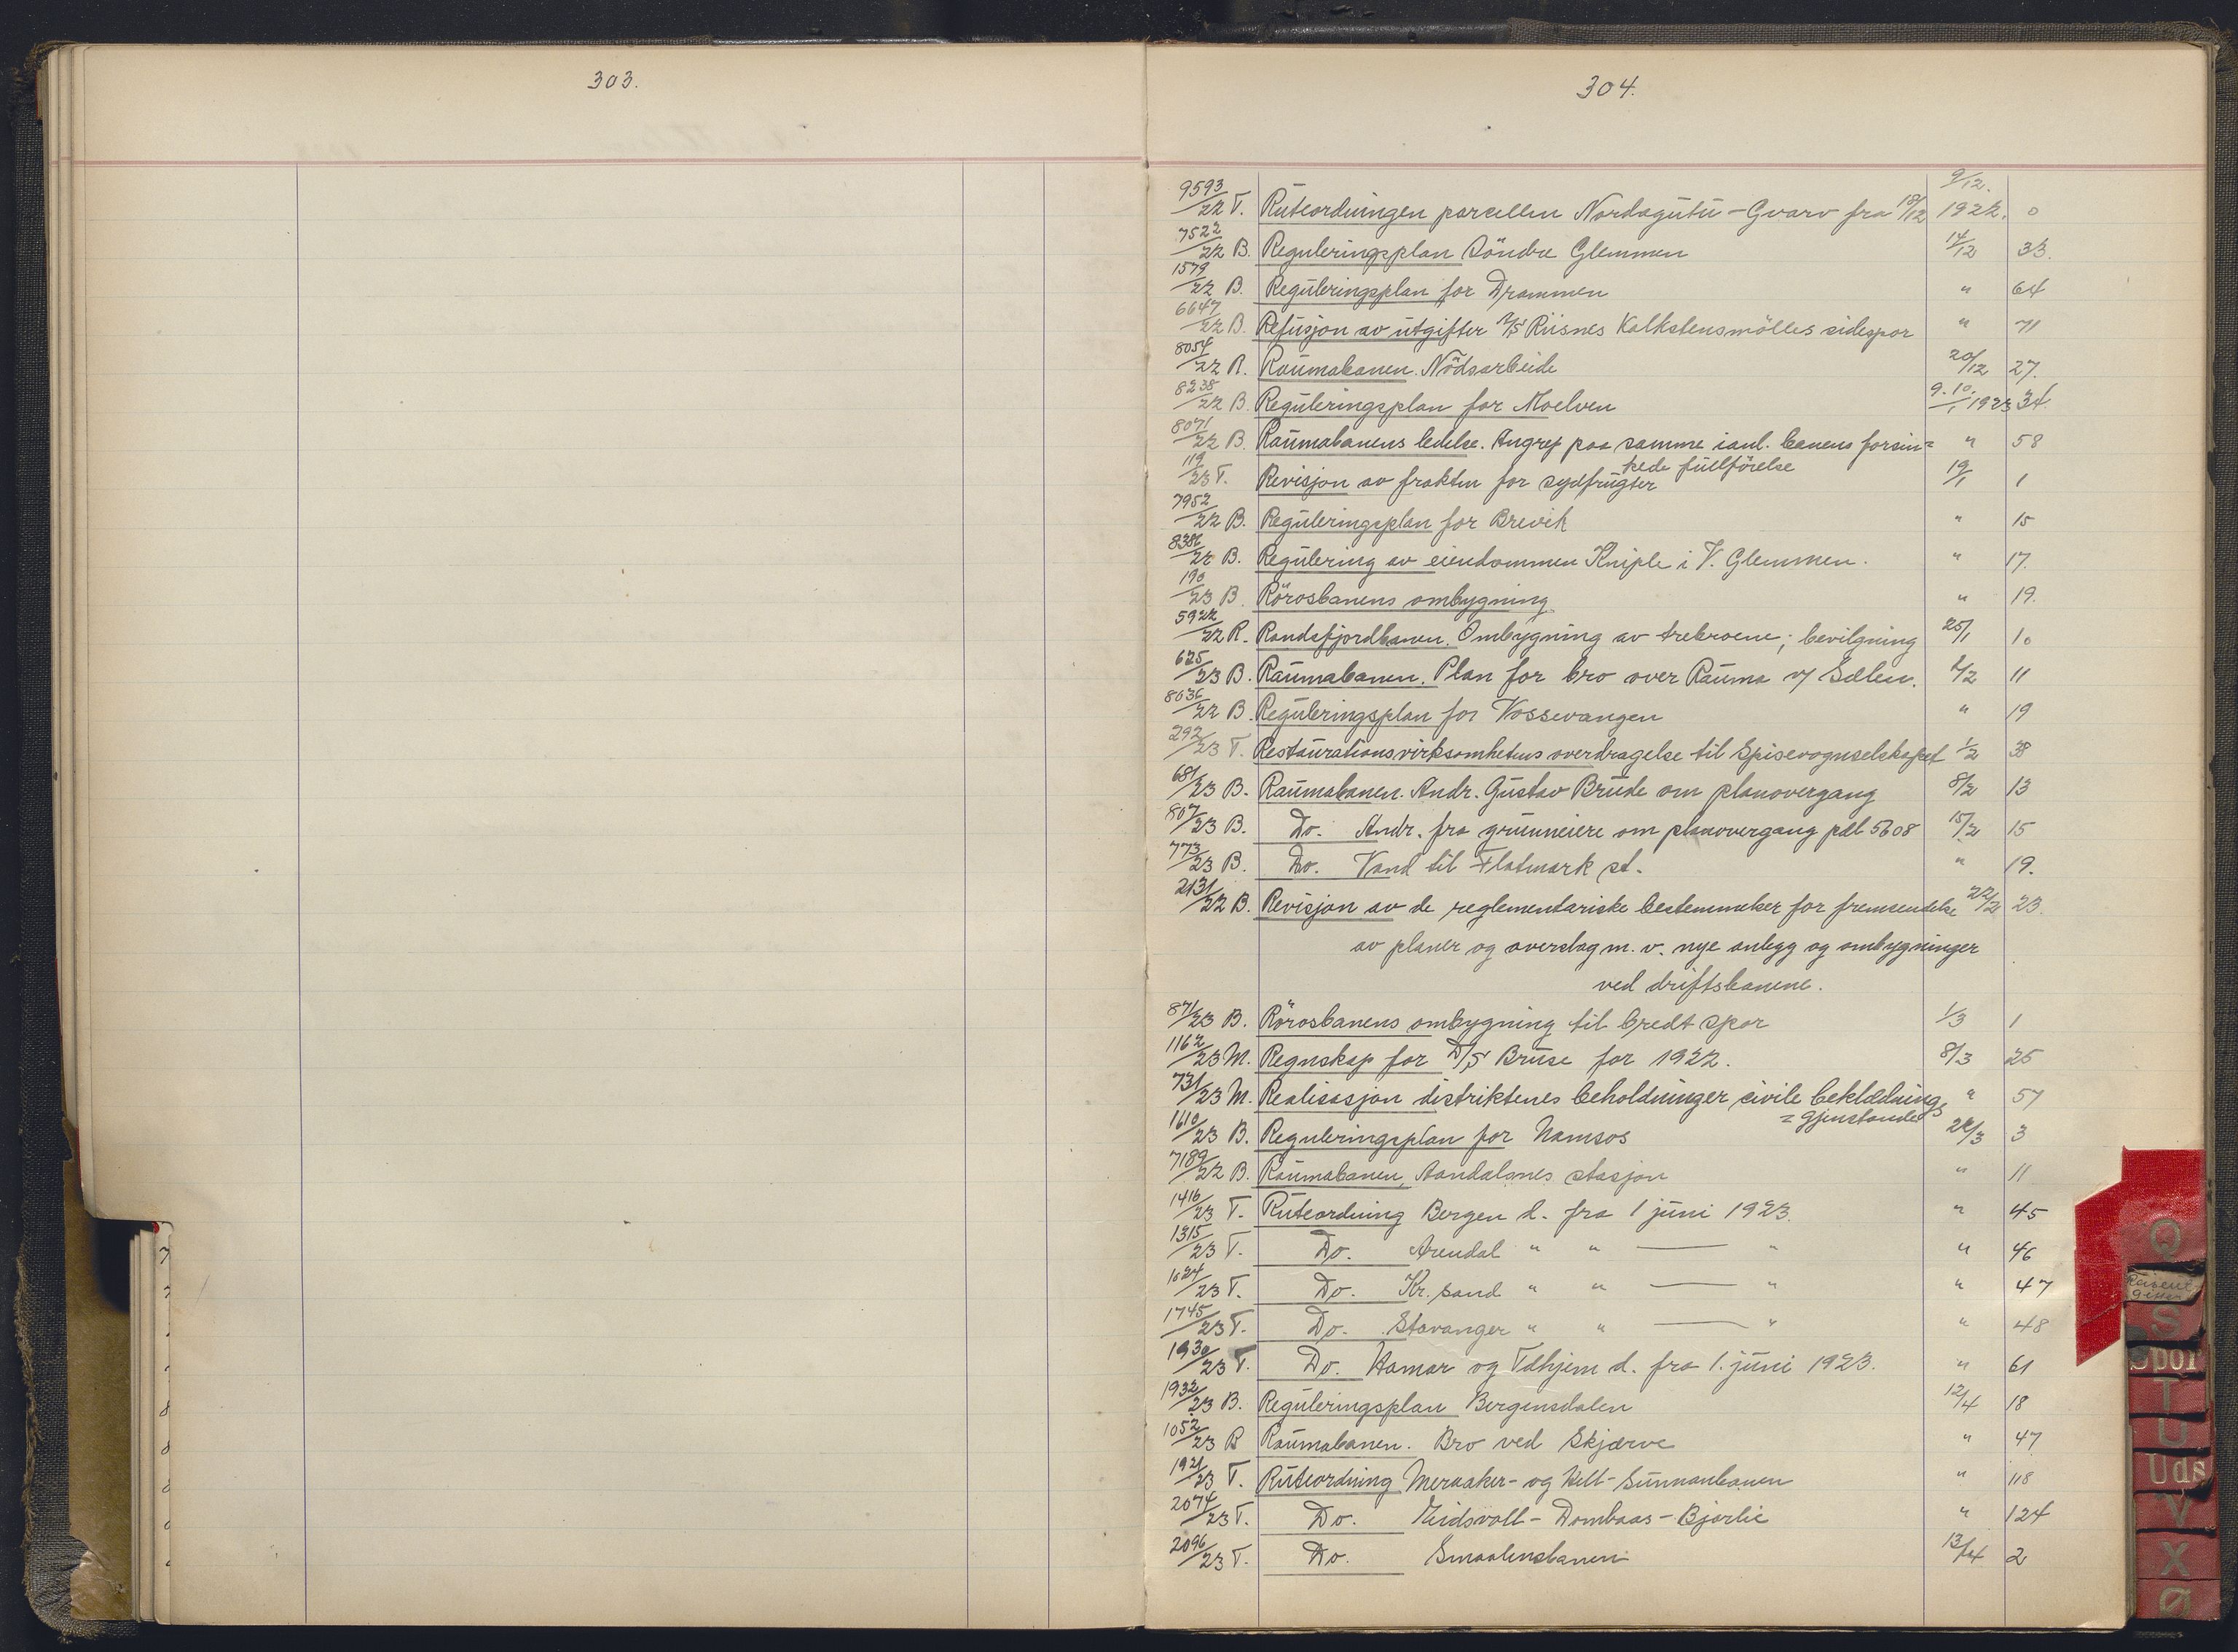 303.
304.
9593/22 T. Ruteordningen parcellen Nordagutu - Gvarv fra 18/12 9/12. 1922. 0
7522/22 B. Reguleringsplan Söndre Glemmen 14/12 33.
1579/22 B. Reguleringsplan for Drammen " 64
6647/22 B. Refusjon av utgifter A/S Riisnes Kalkstensmölles sidespor " 71
8054/22 R. Raumabanen. Nödsarbeide 20/12 27.
8238/22 B. Reguleringsplan for Moelven 9.10/1 1923 34.
8071/22 B. Raumabanens ledelse. Angrep paa samme ianl. banens forsin= " 58
kede fullförelse
119/23 T. Revisjon av frakten for sydfrugter 19/1 1
7952/22 B. Reguleringsplan for Brevik " 15
8386/22 B. Regulering av eiendommen Kniple i V. Glemmen. " 17.
190/23 B. Rörosbanens ombygning " 19.
5922/22 R. Randsfjordbanen. Ombygning av trebroene; bevilgning 25/1 10
625/23 B. Raumabanen. Plan for bro over Rauma v/ 2/2 11
8636/22 B. Reguleringsplan for Vossevangen " 19
292/23 T. Restaurationsvirksomhetens overdragelse til Spisevognselskapet 1/2 38
681/23 B. Raumabanen. Andr. Gustav Brude om planovergang 8/2 13
807/23 B. Do. Andr. fra grunneiere om planovergang pæl 5608 15/2 15
773/23 B. Do. Vand til Flatmark st. " 19.
2131/22 B. Revisjon av de reglementariske bestemmelser for fremsendelse 22/2 23.
av planer og overslag m. v. nye anlegg og ombygninger
ved driftsbanene.
871/23 B. Rörosbanens ombygning til bredt spor 1/3 1
1162/23 M. Regnskap for D/S Bruse for 1922. 8/3 25
731/23 M. Realisasjon distriktenes beholdninger civile beklædnings " 57
= gjenstande
1610/23 B. Reguleringsplan for Namsos 22/3 3
7189/22 B. Raumabanen, Aandalsnes stasjon " 11
1416/23 T. Ruteordning Bergen d. fra 1 juni 1923. " 45
1315/23 T. Do. Arendal " " — " " 46
1624/23 T. Do. Kr. sand " " — " " 47
1745/23 T. Do. Stavanger " " — " " 48
1930/23 T. Do. Hamar og Tdhjem d. fra 1. juni 1923. " 61
1932/23 B. Reguleringsplan Bergensdalen 12/4 18
1052/23 B Raumabanen. Bro ved Skjærve " 47
1921/23 T. Ruteordning Meraaker- og Hell-Sunnanbanen " 118
2074/23 T. Do. Eidsvoll - Dombaas - Bjorli " 124
2096/23 T. Do. Smaalensbanen 13/4 2
Q
S
Spor
T
U
Uds
V
X
Ø